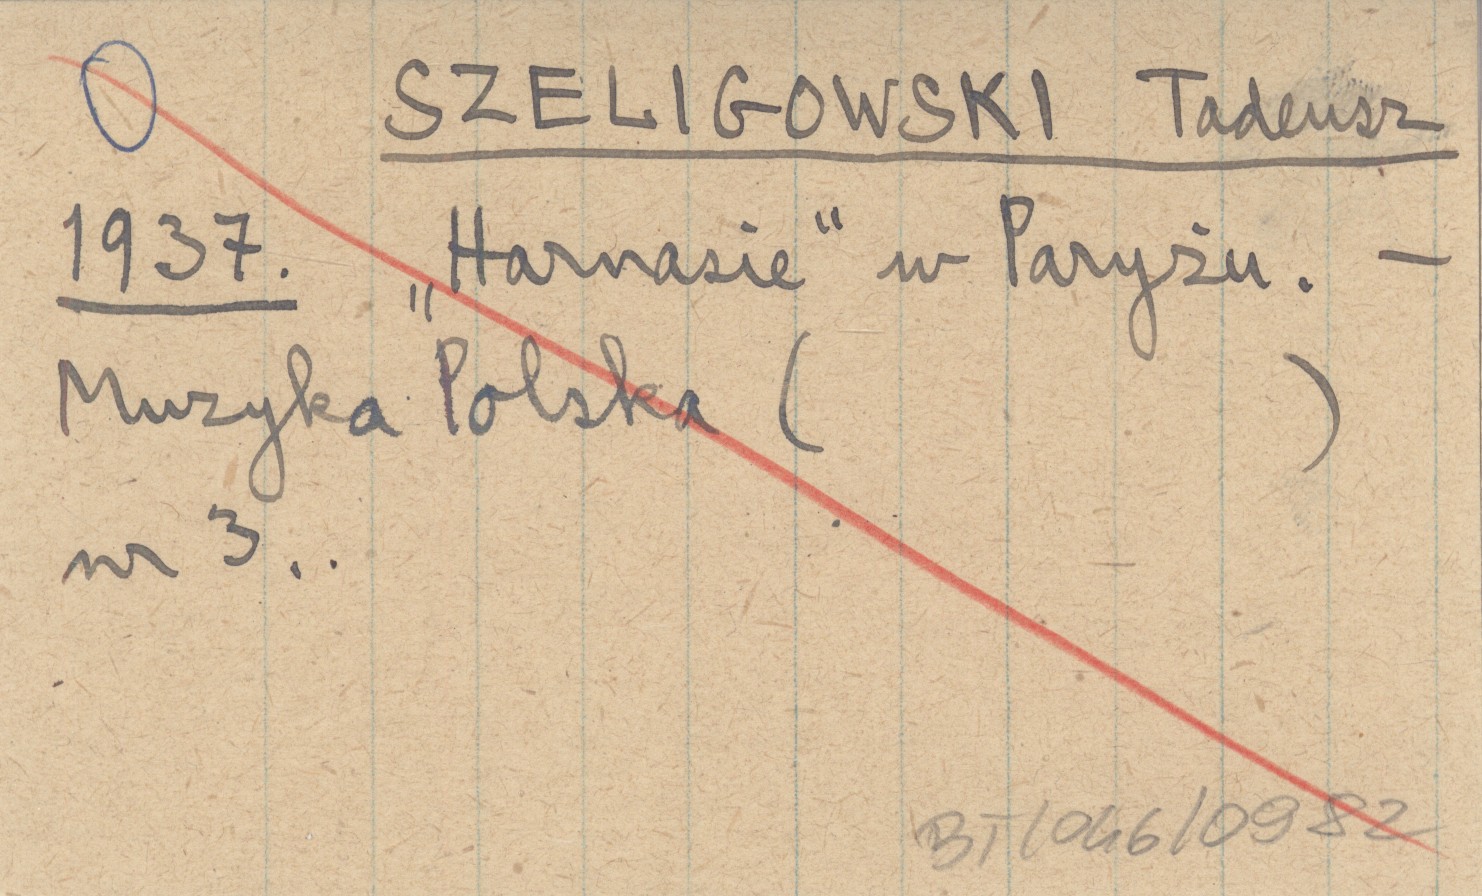 SZELIGOWSKI Tadeusz
1937. „Harnasie“ w Paryżu. —
Muzyka Polska (                    )
nr 3..
BT/046/0982